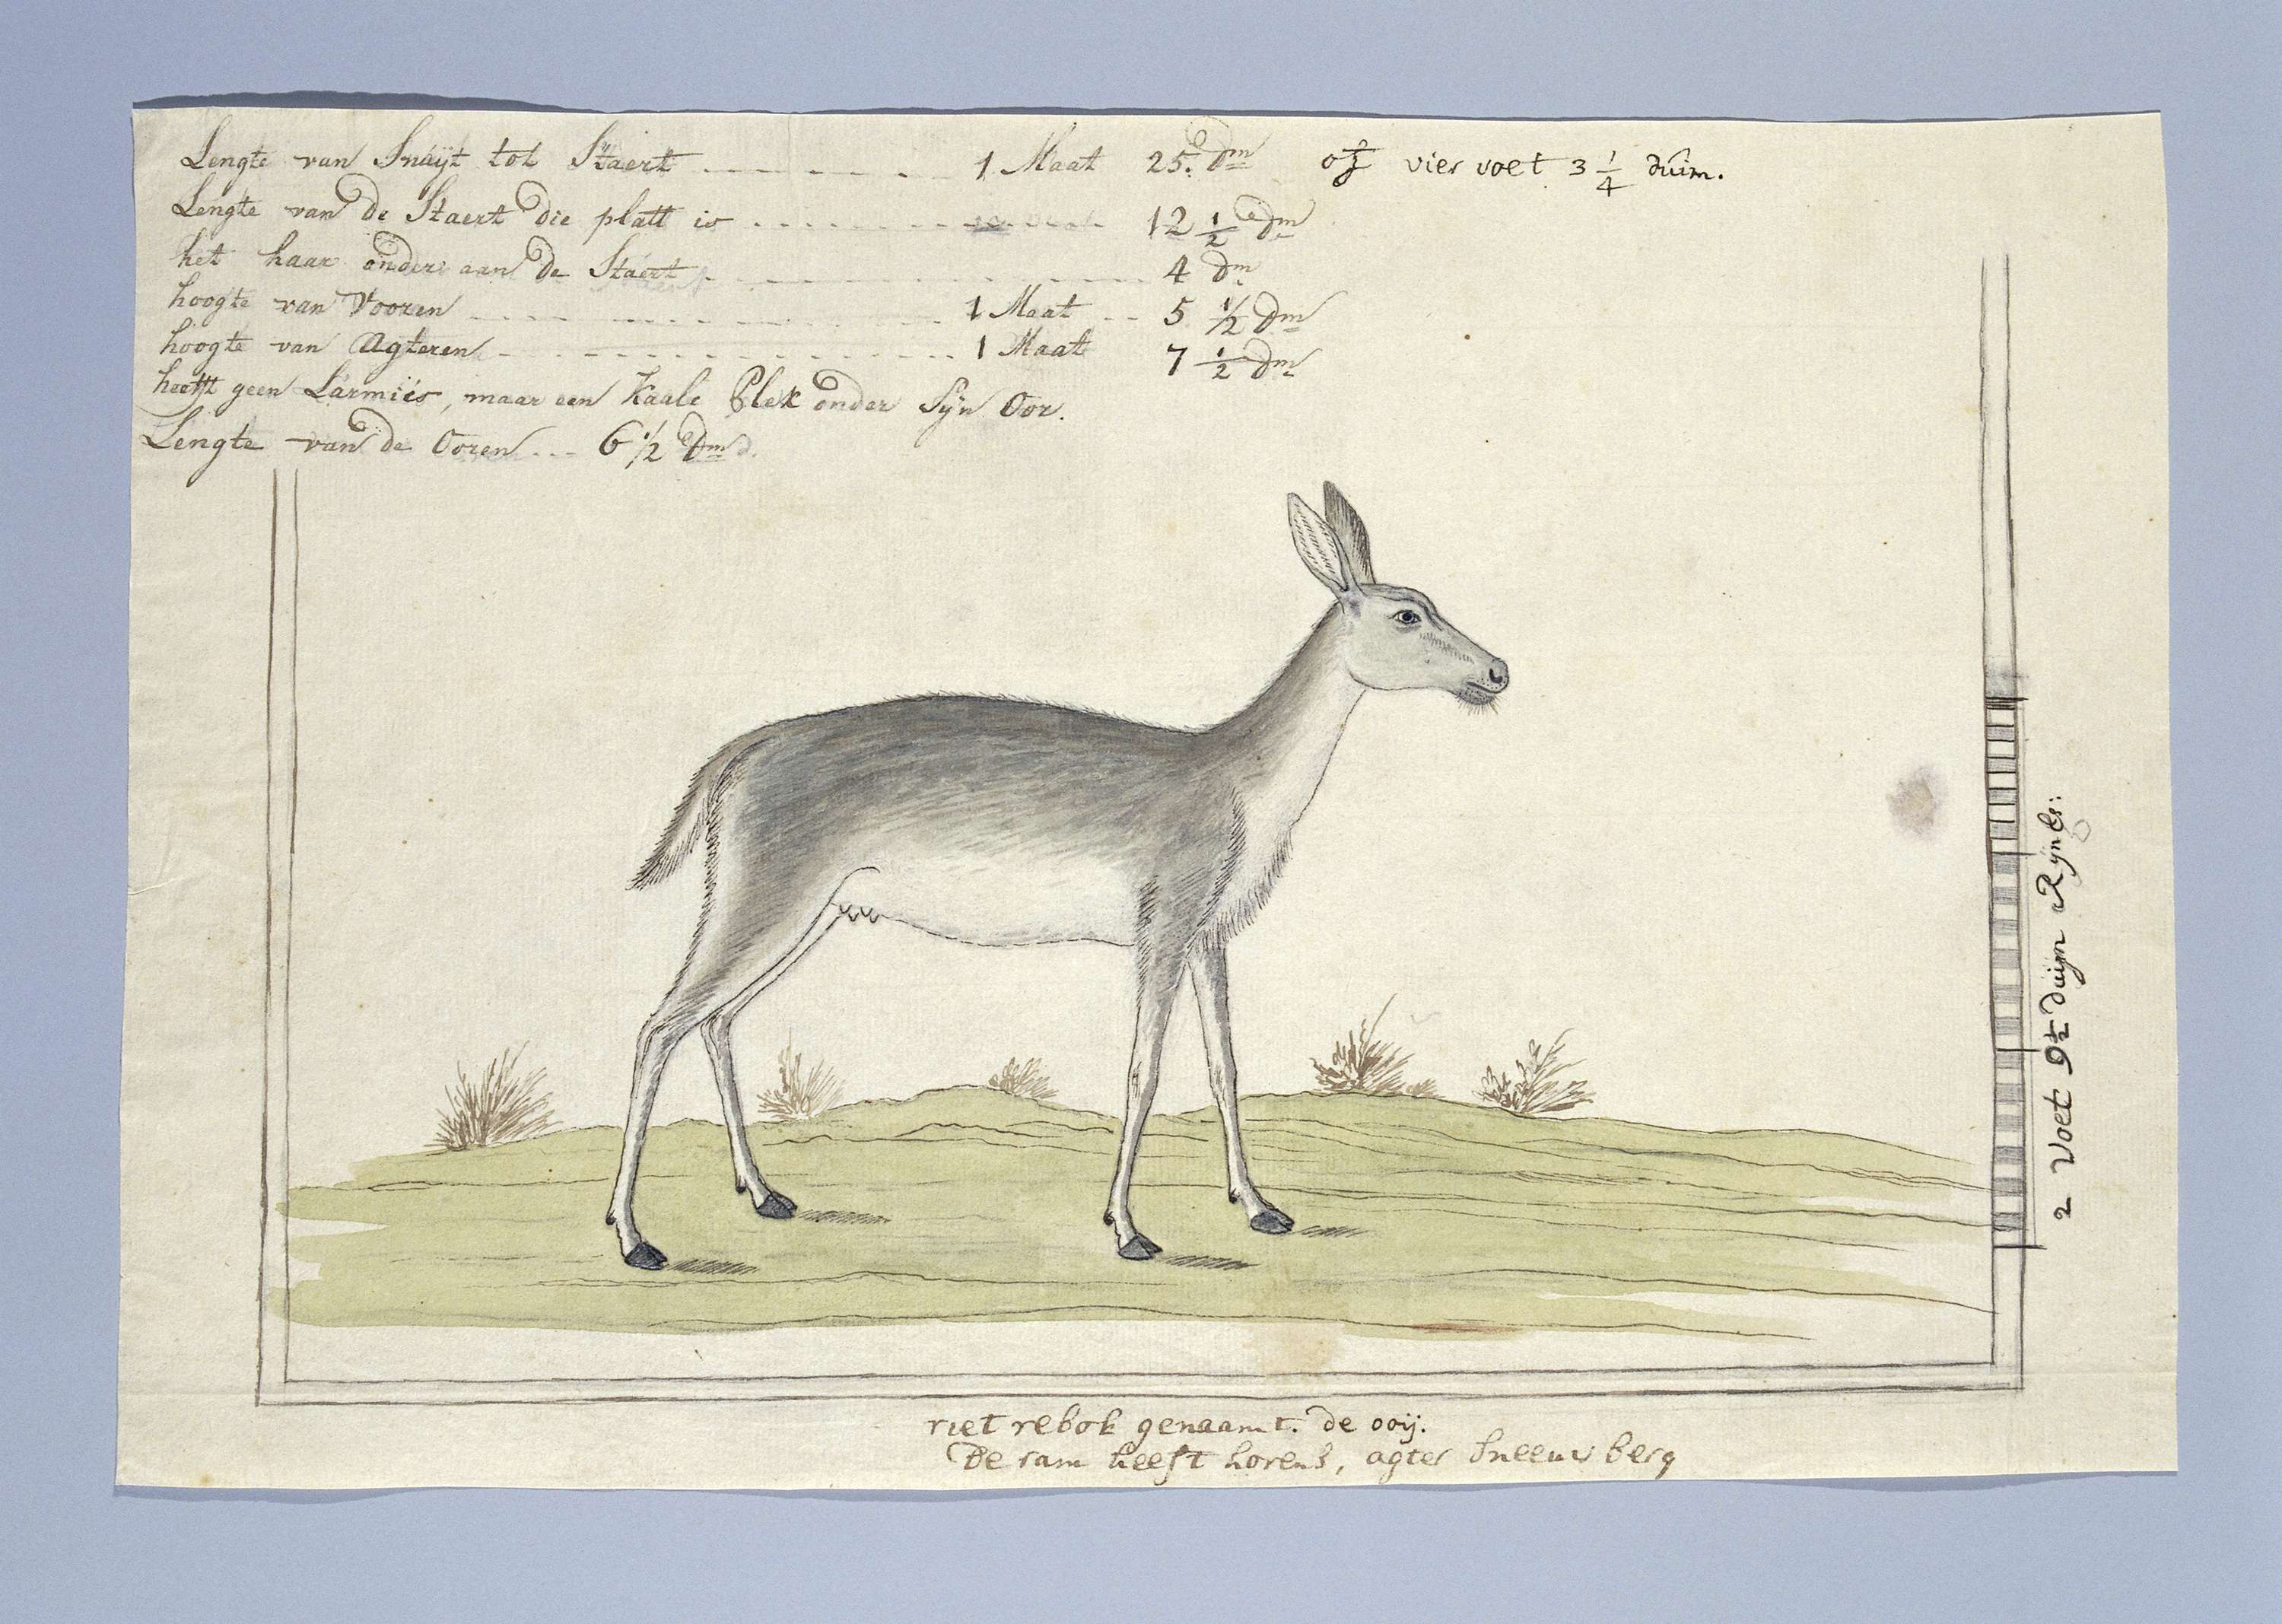 Lengte van Snuÿt tot Staert 1 Maat 25. Dm of vier voet 3 1/4 duim.
Lengte van de Staert die platt is 12 1/2 Dm
het haar onder aan de Staert 4 Dm
hoogte van Vooren 1 Maat 5 1/2 Dm
hoogte van Agteren 1 Maat 7 1/2 Dm
heefft geen Larmiés, maar een Kaale Plek onder Sÿn Oor.
Lengte van de Ooren 6 1/2 Dm
2 Voet 9 1/2 duijm Rijnls:
riet rebok genaamt. de ooij.
De ram heeft horens, agter Sneeuwberg